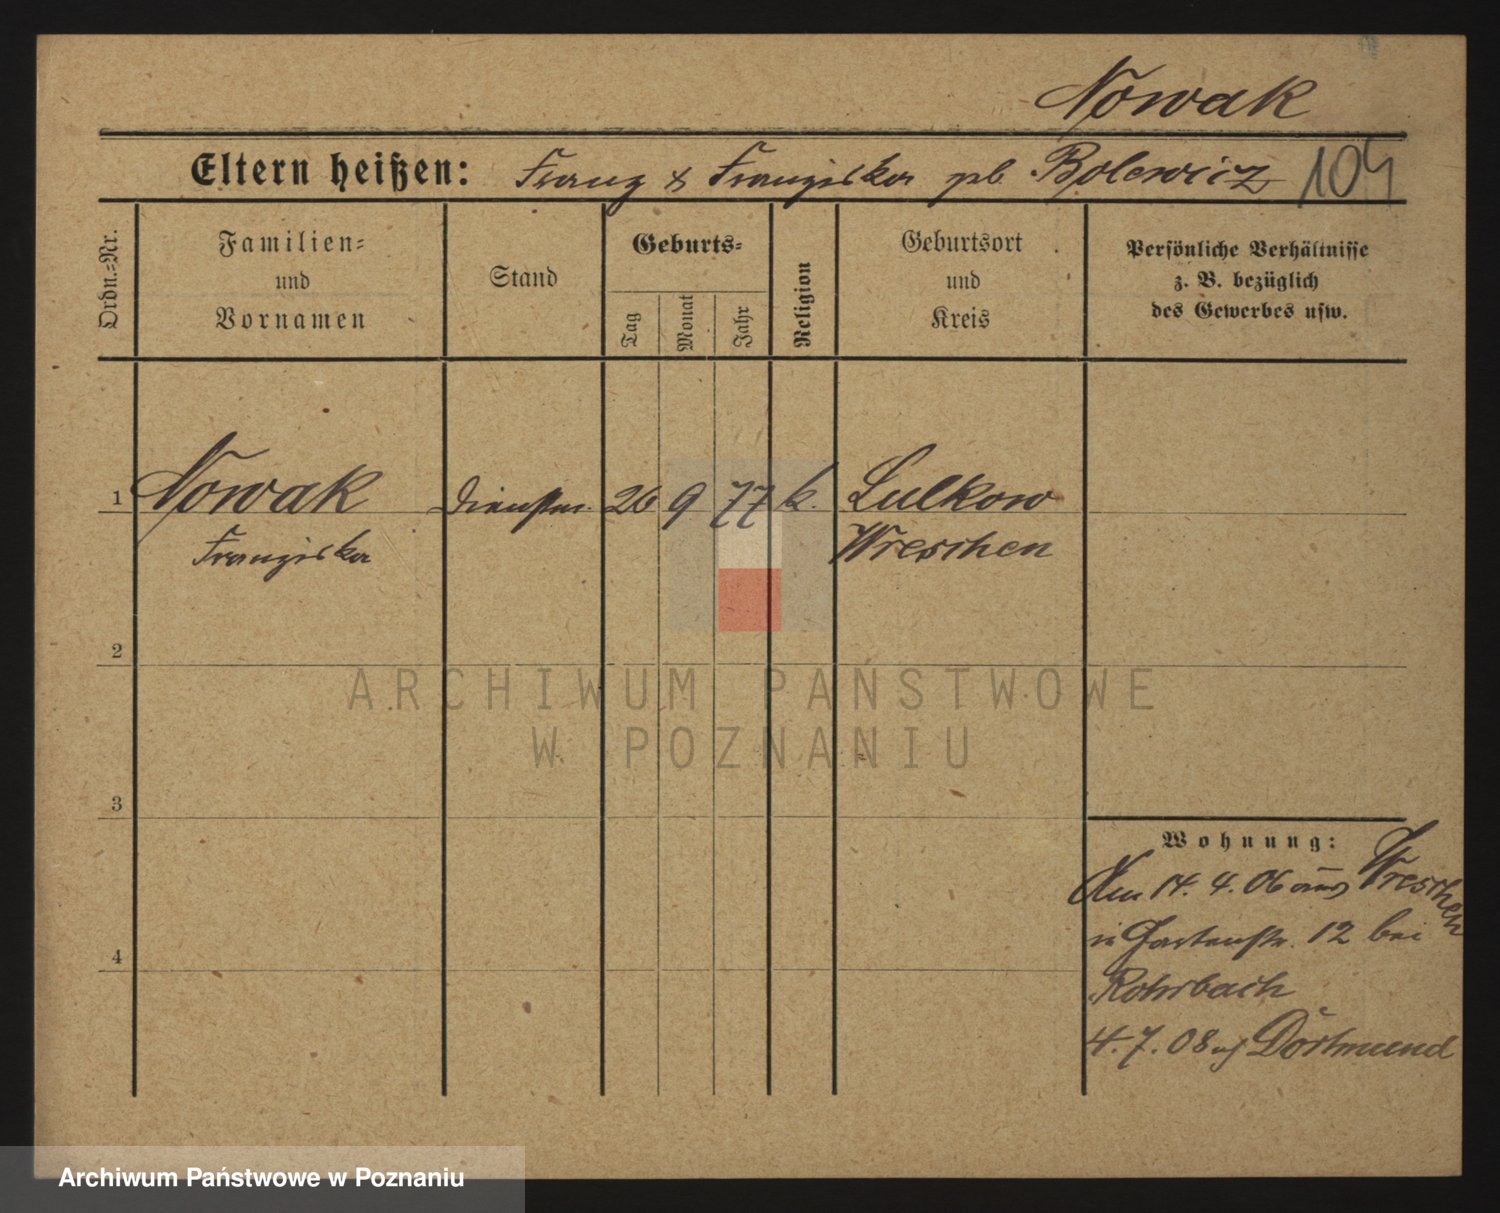 Nowak
Eltern heißen: Franz & Franziska geb. Bolewicz 104
Ordn.=Nr.
Familien=
und
Vornamen
Stand
Geburts=
Tag
Monat
Jahr
Religion
Geburtsort
und
Kreis
Persönliche Verhältnisse
z. B. bezüglich
des Gewerbes usw.
1 Nowak Dienstm. 26 9 77 k. Lulkow
Franziska Wreschen
2
ARCHIWUM PAŃSTWOWE
W POZNANIU
3
Wohnung:
Am 14. 4. 06 aus Wreschen
in Gartenstr. 12 bei
4
Rohrbach
4. 7. 08 n/ Dortmund
Archiwum Państwowe w Poznaniu